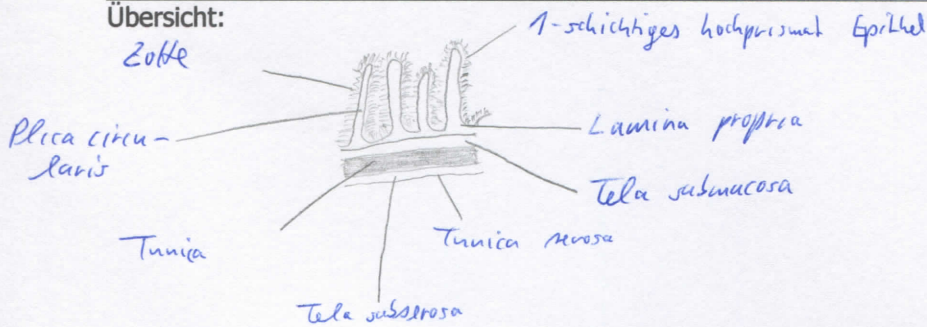 Übersicht:
Zotte
1-schichtiges hochprismat Epithel
Plica circu-
laris
Lamina propria
Tela submucosa
Tunica
Tunica serosa
Tela subserosa